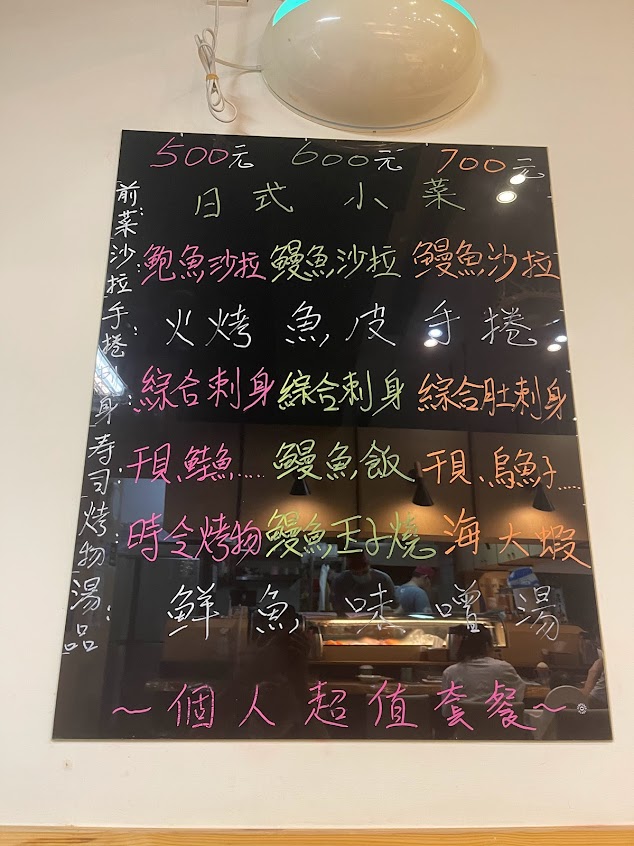 500元 600元 700元
前菜: 日式小菜
沙拉: 鮑魚沙拉 鰻魚沙拉 鰻魚沙拉
手捲: 火烤魚皮手捲
刺身: 綜合刺身 綜合刺身 綜合肚刺身
寿司: 干貝、鮭魚..... 鰻魚飯 干貝、烏魚子.....
烤物: 時令烤物 鰻魚玉子燒 海大蝦
湯品: 鮮魚味噌湯
~個人超值套餐~